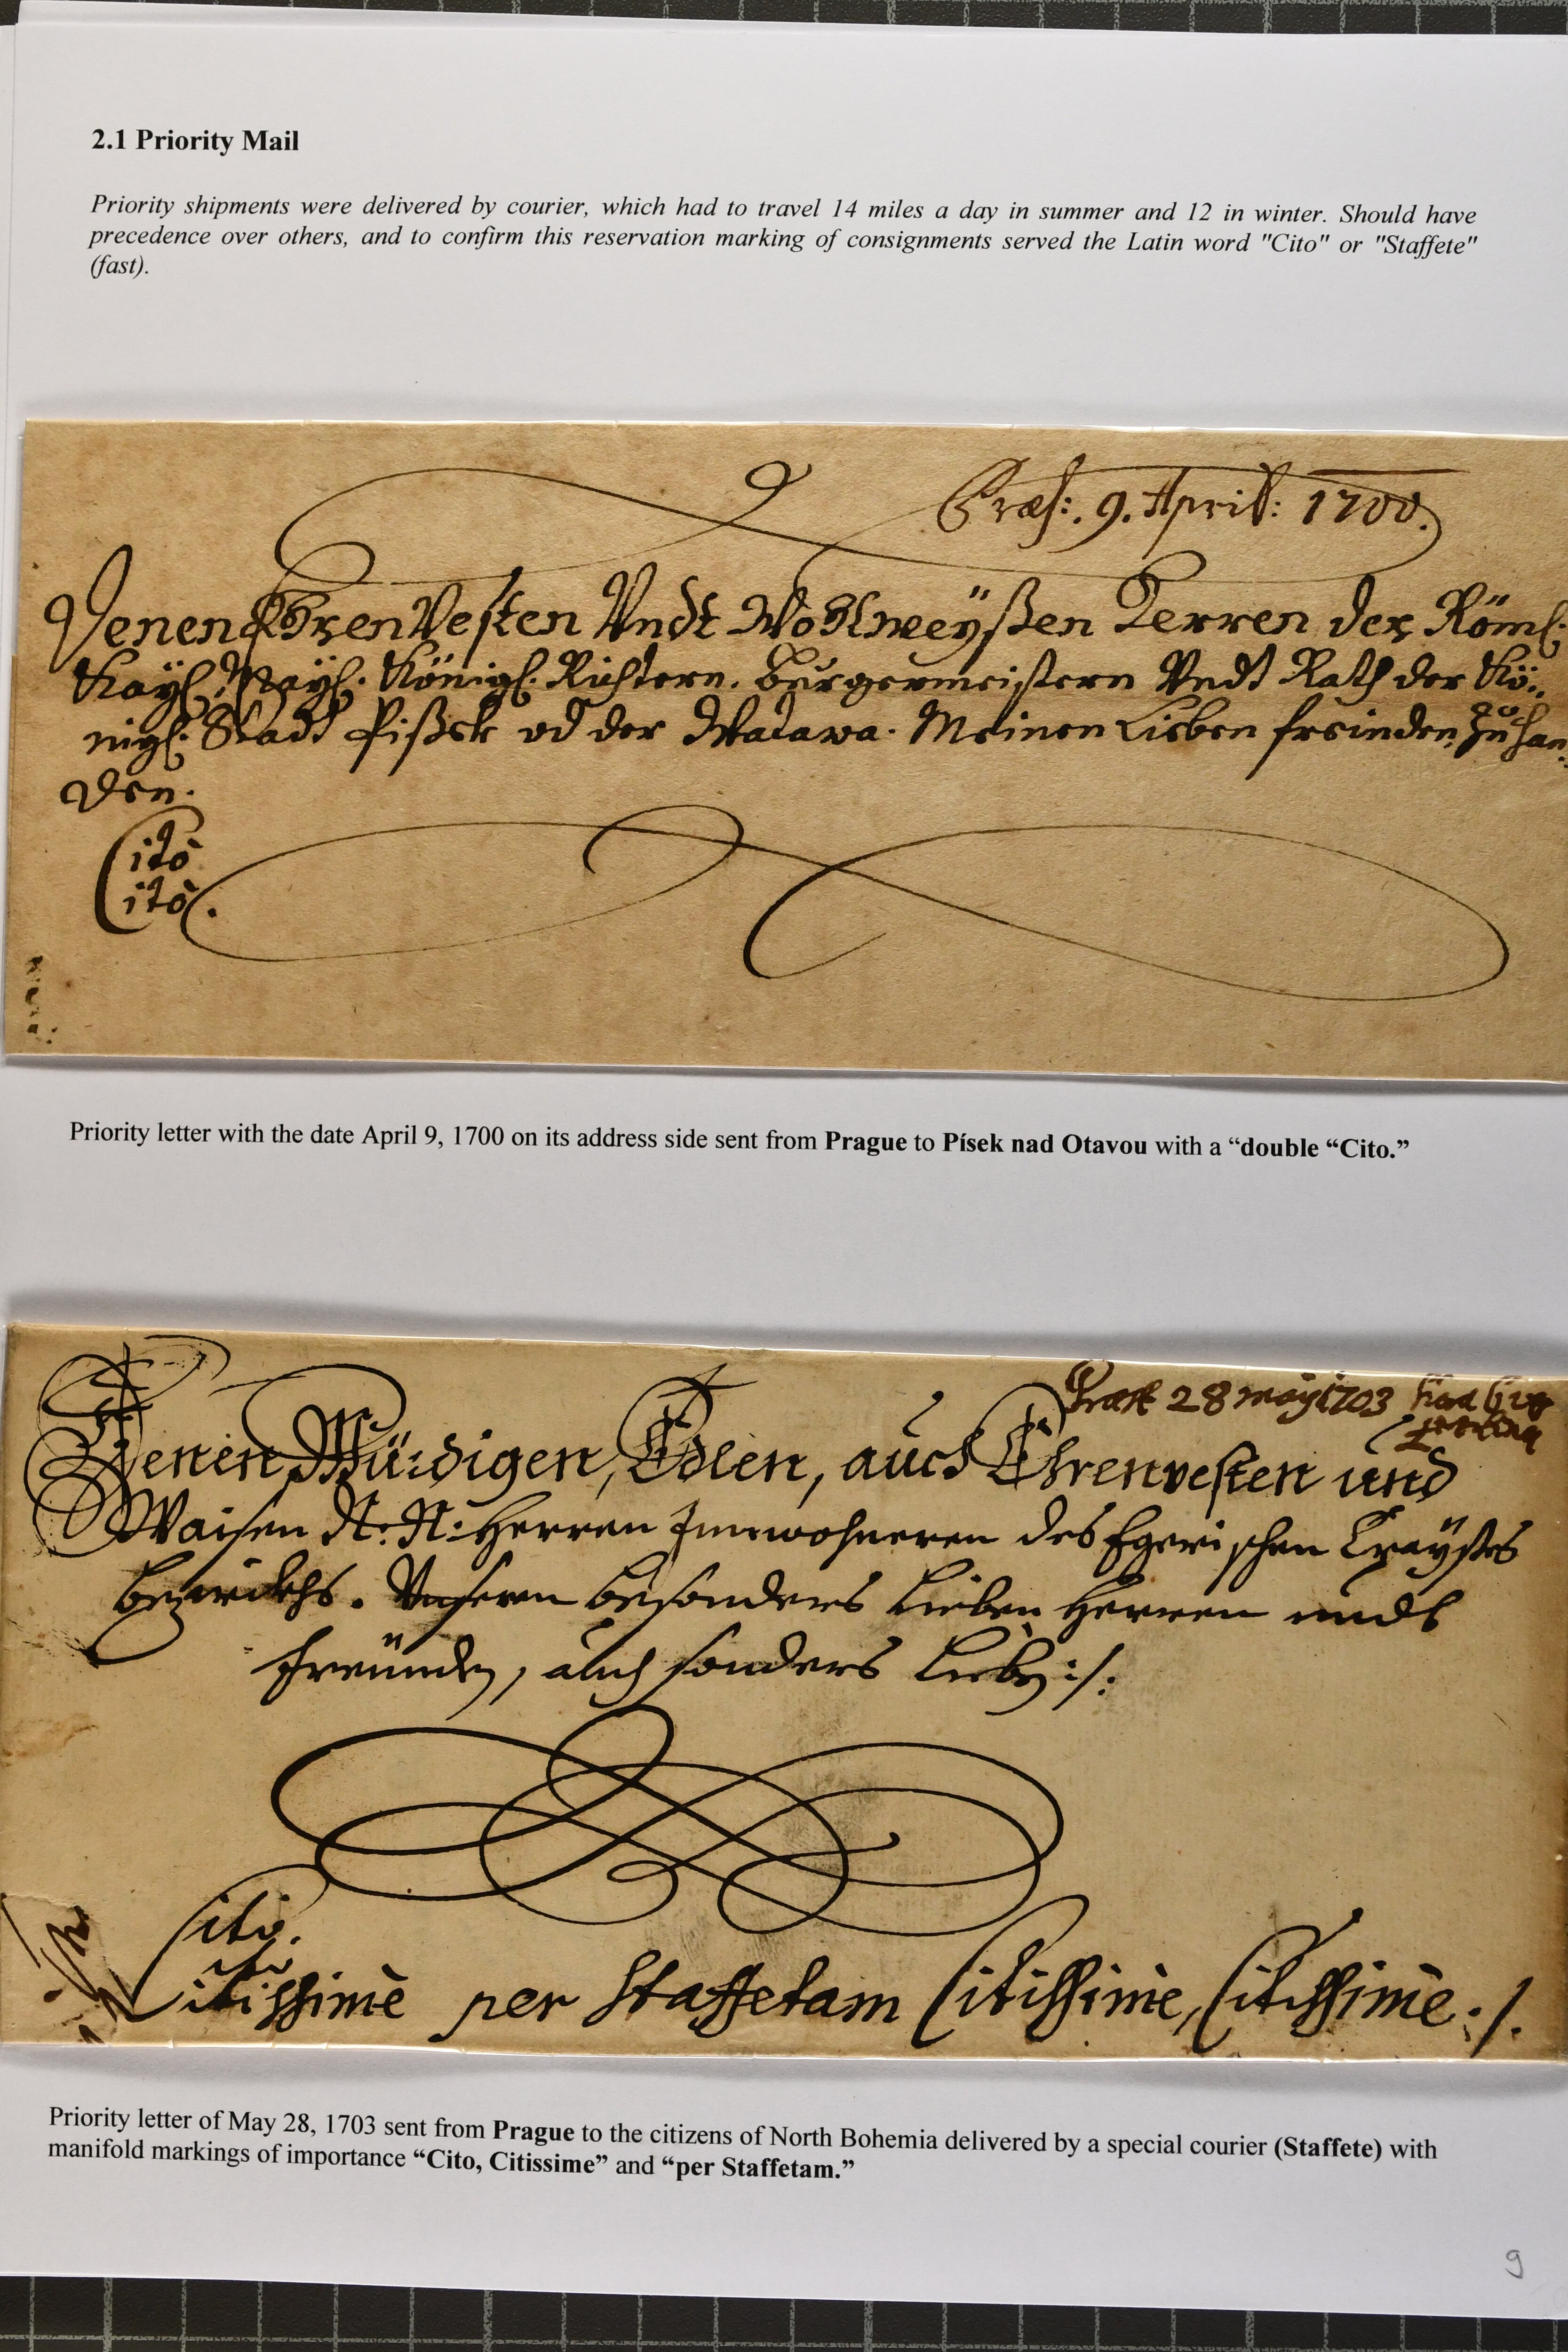 2.1 Priority Mail
Priority shipments were delivered by courier, which had to travel 14 miles a day in summer and 12 in winter. Should have
precedence over others, and to confirm this reservation marking of consignments served the Latin word "Cito" or "Staffete"
(fast).
Præs: 9. April: 1700.
Denen EhrenVesten Undt Wohlweÿßen Herren der Röml.
Kaÿl. Maÿl. Königl. Richtern. Bürgermeistern Undt Rath der Kö:
nigl. Stadt Pißek od der Watawa. Meinen Lieben freinden zu han:
den.
Cito
Cito.
Priority letter with the date April 9, 1700 on its address side sent from Prague to Písek nad Otavou with a “double “Cito.”
28 may 1703
Denen Würdigen, Edlen, auch Ehrenvesten und
Waisen N: N: Herren Innwohneren des Egerischen Craÿßes
bezirckhs. Unseren besonders Lieben Herren undt
freünden, auch sonders Lieben :/:
Cito.
cito
Citissimè per Staffetam Citissimè, Citissimè :/.
Priority letter of May 28, 1703 sent from Prague to the citizens of North Bohemia delivered by a special courier (Staffete) with
manifold markings of importance “Cito, Citissime” and “per Staffetam.”
9